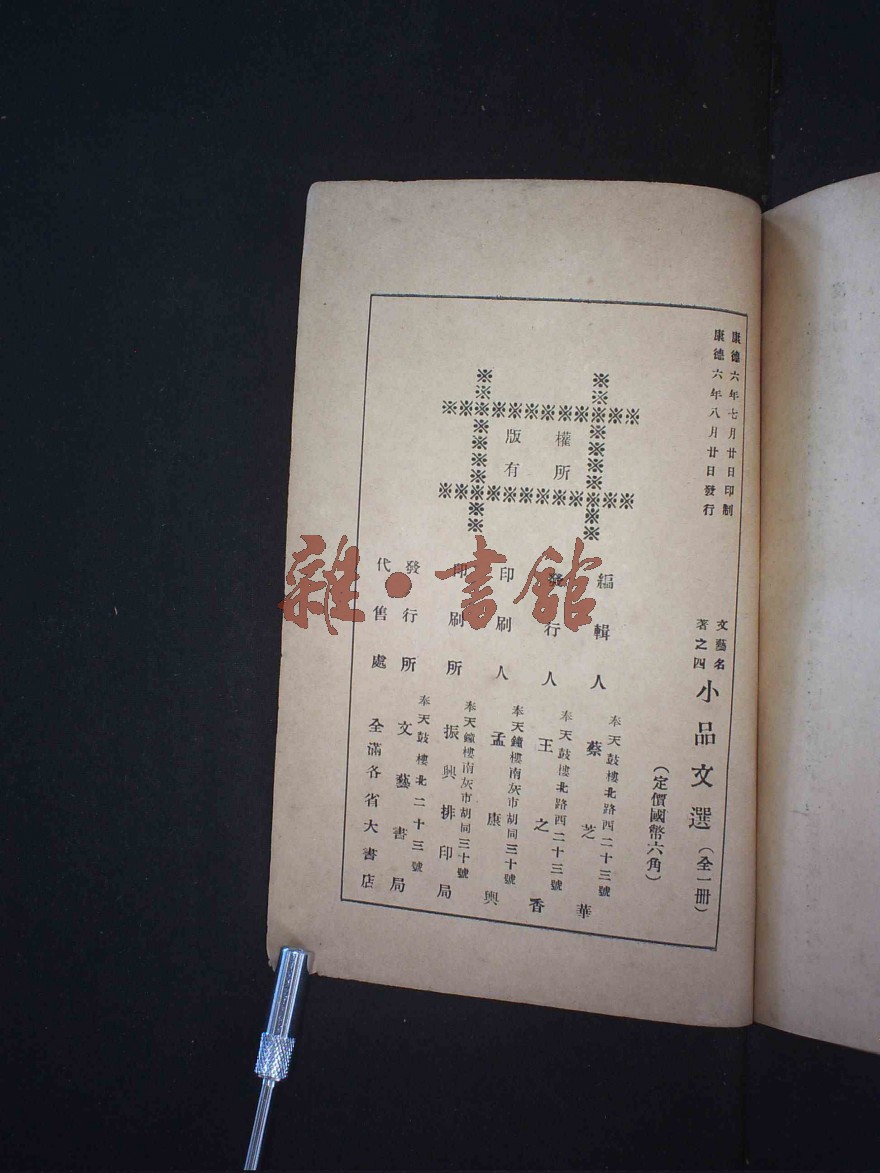 康德六年七月廿日印制
康德六年八月廿日發行
文藝名
著之四
小品文選（全一册）
（定價國幣六角）
版權
所有
編輯人
奉天鼓樓北路西二十三號
蔡芝華
發行人
奉天鼓樓北路西二十三號
王之香
印刷人
奉天鐘樓南灰市胡同三十號
孟康興
印刷所
奉天鐘樓南灰市胡同三十號
振興排印局
發行所
奉天鼓樓北二十三號
文藝書局
代售處
全滿各省大書店
雜·書館